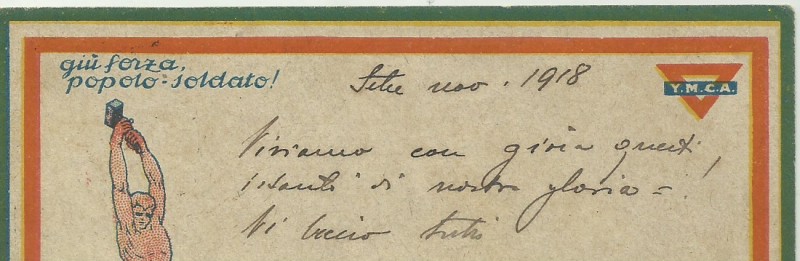 giù forza,
popolo-soldato!
nov. 1918
Y.M.C.A.
Viviamo con gioia questi
istanti di nostra gloria=!
Vi bacio tutti